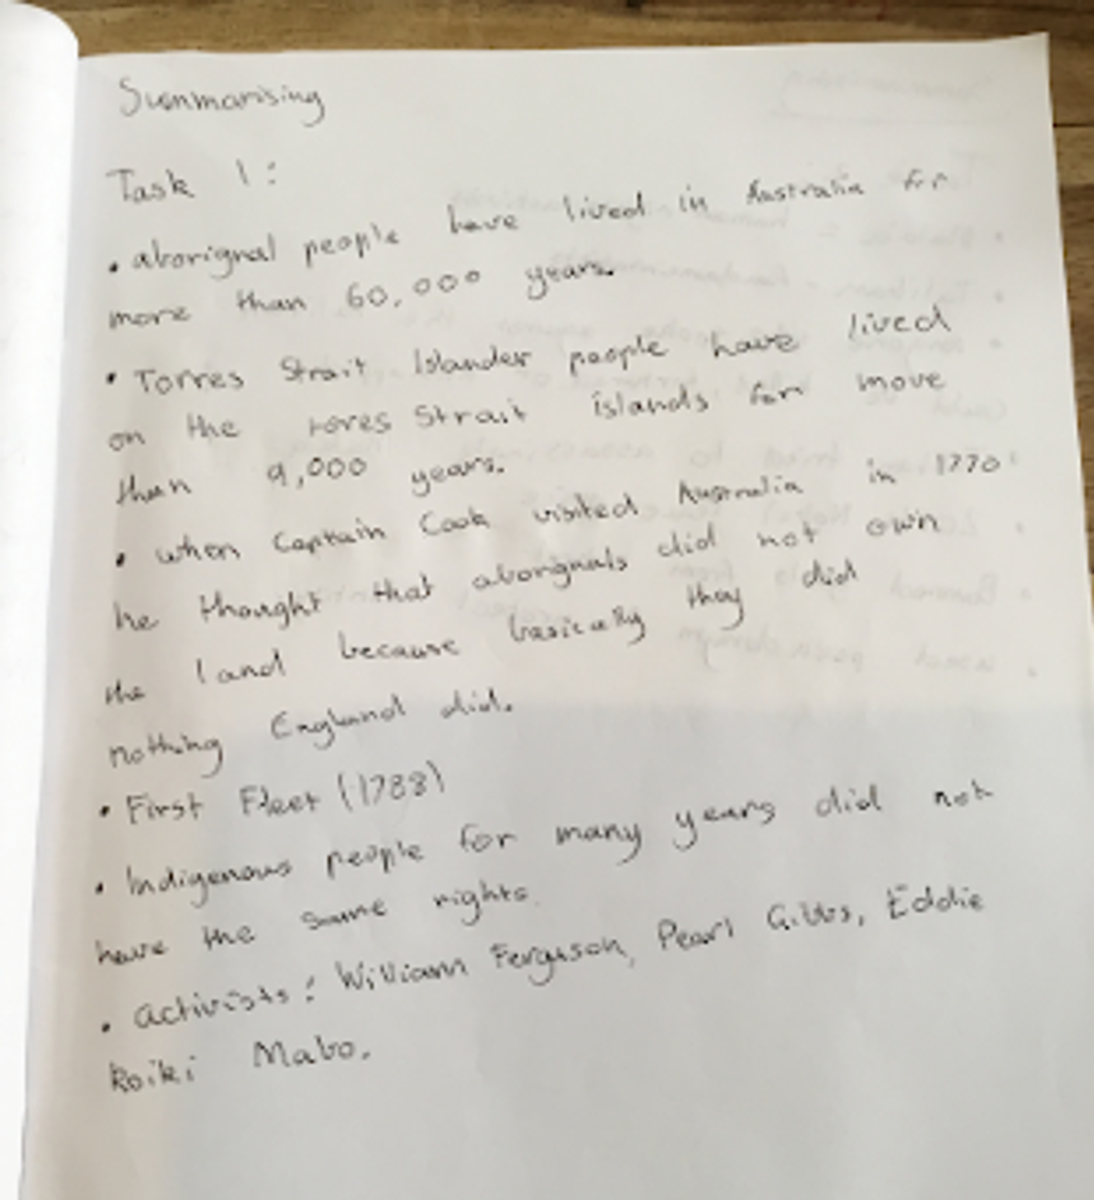 Summarising
Task 1:
• aborignal people have lived in Australia for
more than 60,000 years.
• Torres Strait Islander people have lived
on the Tores Strait islands for more
than 9,000 years.
• when Captain Cook visited Australia in 1770
he thought that aborignals did not own
the land because basically they did
nothing England did.
• First Fleet (1788)
• Indigenous people for many years did not
have the same rights.
• activists: William Ferguson, Pearl Gibbs, Eddie
Koiki Mabo.